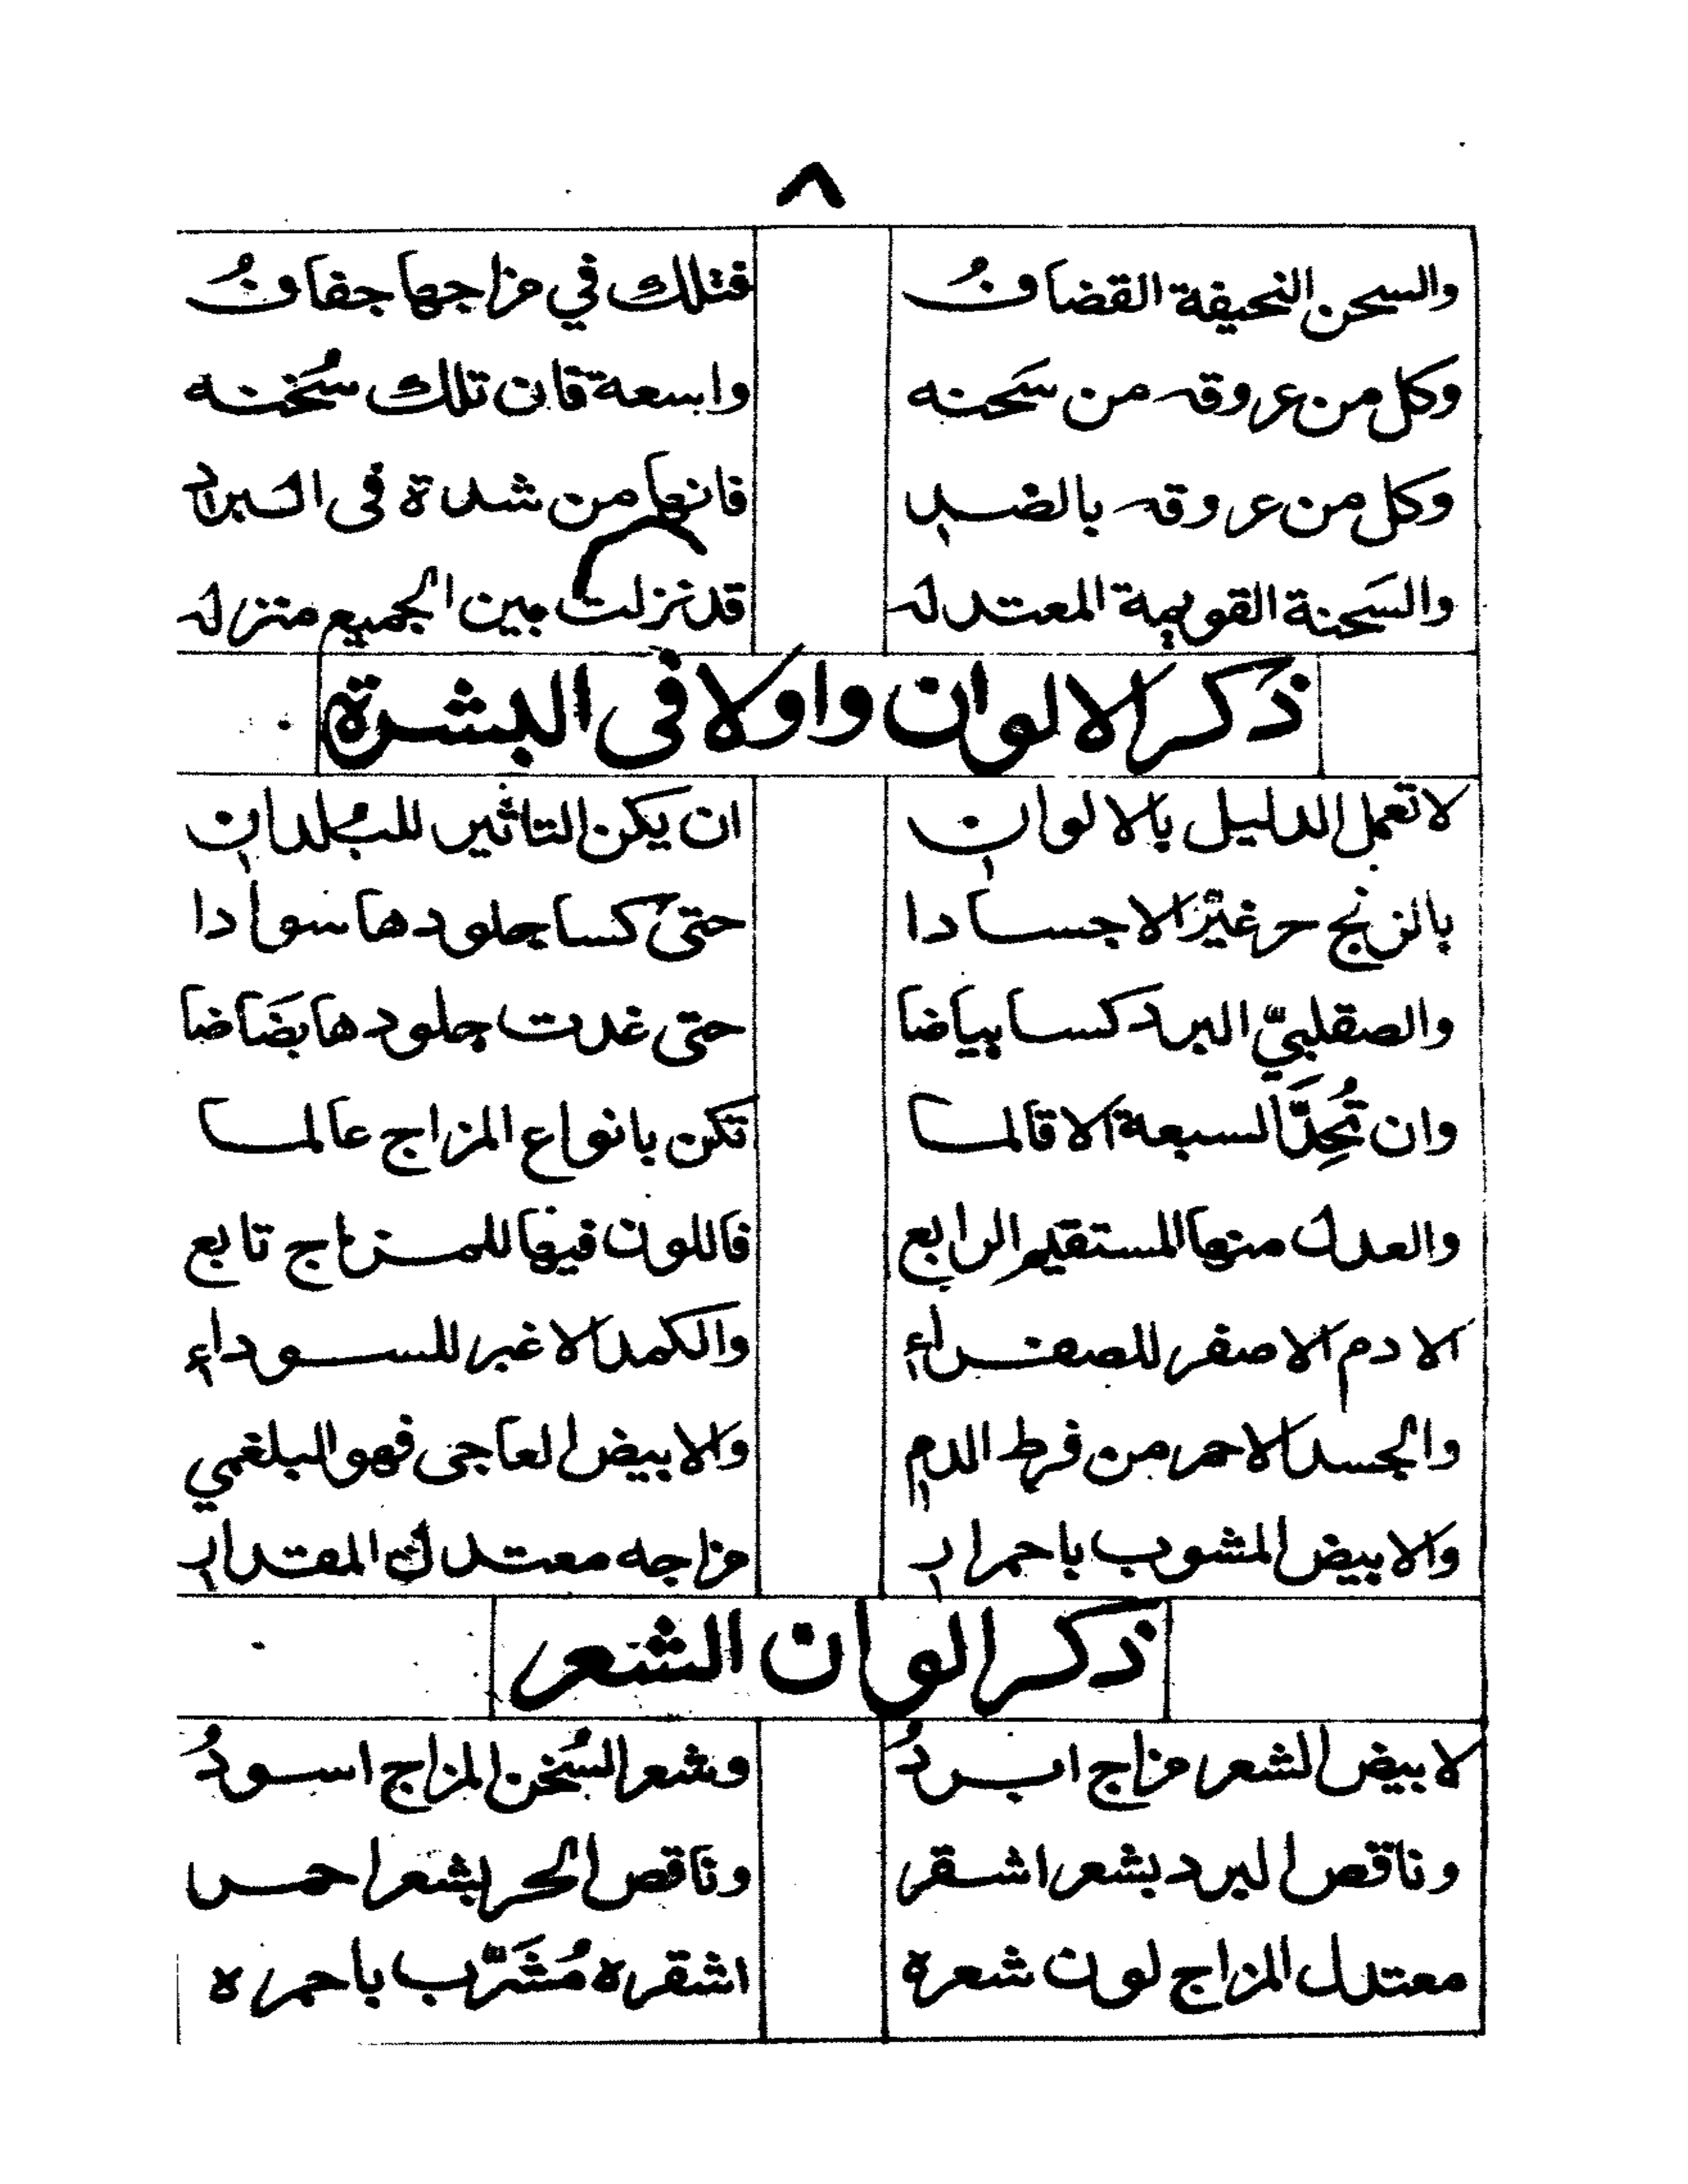 ٨
والسحن النحيفة القضافُ فتلك في مزاجها جفافُ
وكل من عروقه من سَحنه واسعة فان تلك سُخنه
وكل من عروقه بالضدِ فانها من شدة فى البرد
والسَحنة القويمة المعتدله قد نزلت بين الجميع منزله
ذكر الالوان واولا فى البشرة
لا تعمل الدليل بالالوانِ ان يكن التاثير للبُلدانِ
بالزنج حر غيّر الاجسادا حتى كسا جلودها سوادا
والصقلبيّ البرد كسا بياضا حتى غدت جلودها بضَاضا
وان تُحِدَّ السبعة الاقالما تكن بانواع المزاج عالما
والعدل منها المستقيم الرابع فاللون فيها للمزاج تابع
الادم الاصفر للصفراءِ والكمد الاغبر للسوداءِ
والجسد الاحمر من فرط الدمِ والابيض العاجى فهو البلغمي
والابيض المشوب باحمرارِ مزاجه معتدل المقدارِ
ذكر الوان الشعر
لابيض الشعر مزاج ابردُ وشعر السُخن المزاج اسودُ
وناقص البرد بشعر اشقر وناقص الحر بشعر احمر
معتدل المزاج لون شعره اشقره مُشَرَّب باحمره